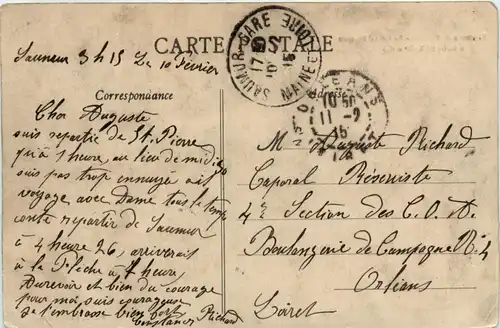 CARTE POSTALE
SAUMUR-GARE
MAINE ET LOIRE
17
10
15
ORLEANS
10 50
11-2
15
Correspondance
Adresse
Saumur 3h15 Le 10 Février
Cher Auguste
suis repartie de St. Pierre
qu'à 1 heure, au lieu de midi 20
suis pas trop ennuyé ait
voyagé avec Dame tous le temps
conte repartir de Saumur
à 4 heure 26, arriverais
à la Flèche à 7 heure,
Aurevoir et bien du courage
pour moi suis courageuse
Je t'embrasse bien fort
Constance Richard
Mr Auguste Richard
Caporal Réserviste
4e Section des C. O. A.
Boulangerie de Campagne N. 4
Orléans
Loiret